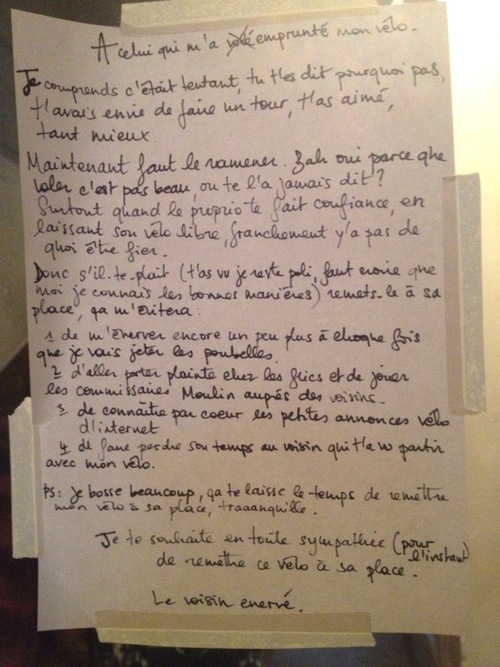 A celui qui m'a volé emprunté mon vélo.
Je comprends c'était tentant, tu t'es dit pourquoi pas,
t'avais envie de faire un tour, t'as aimé,
tant mieux.
Maintenant faut le ramener. Bah oui parce que
voler c'est pas beau, on te l'a jamais dit ?
Surtout quand le proprio te fait confiance, en
laissant son vélo libre, franchement y'a pas de
quoi être fier.
Donc s'il-te-plait (t'as vu je reste poli, faut croire que
moi je connais les bonnes manières) remets-le à sa
place, ça m'évitera :
1 de m'énerver encore un peu plus à chaque fois
que je vais jeter les poubelles.
2 d'aller porter plainte chez les flics et de jouer
les commissaires Moulin auprès des voisins.
3 de connaître par coeur les petites annonces vélo
d'internet
4 de faire perdre son temps au voisin qui t'a vu partir
avec mon vélo.
PS : Je bosse beaucoup, ça te laisse le temps de remettre
mon vélo à sa place, traaanquille.
Je te souhaite en toute sympathie (pour l'instant)
de remettre ce vélo à sa place.
Le voisin enervé.